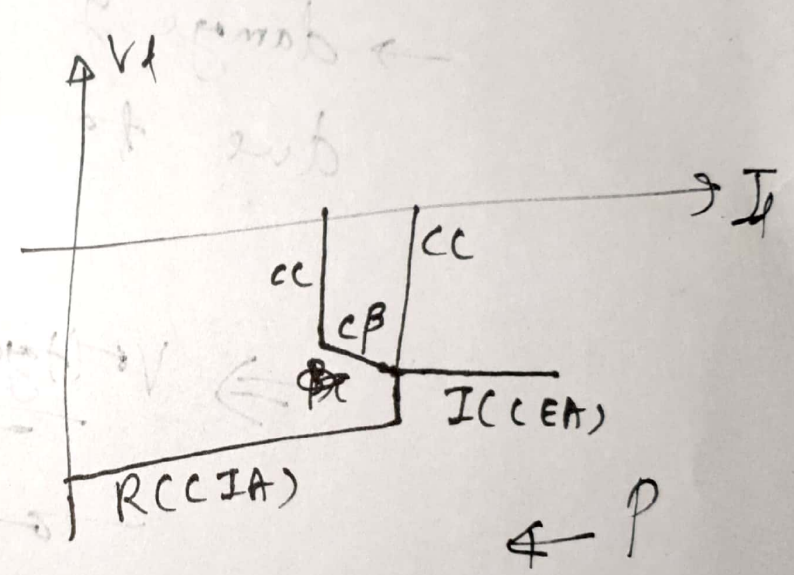 Vd
Id
CC
CC
Cβ
I(CEA)
R(CIA)
← P